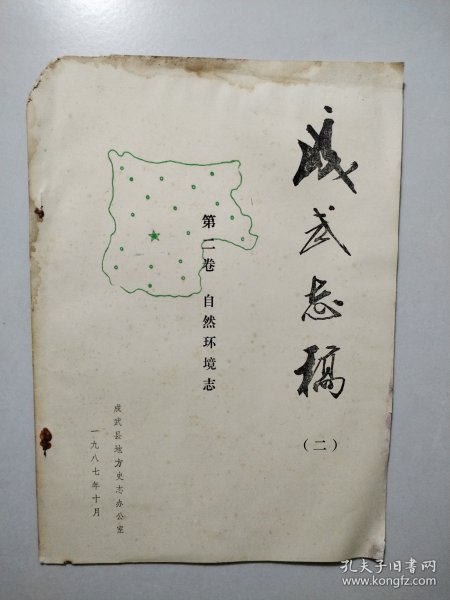 成武志稿
（二）
第二卷 自然环境志
成武县地方史志办公室
一九八七年十月
孔夫子旧书网
www.kongfz.com